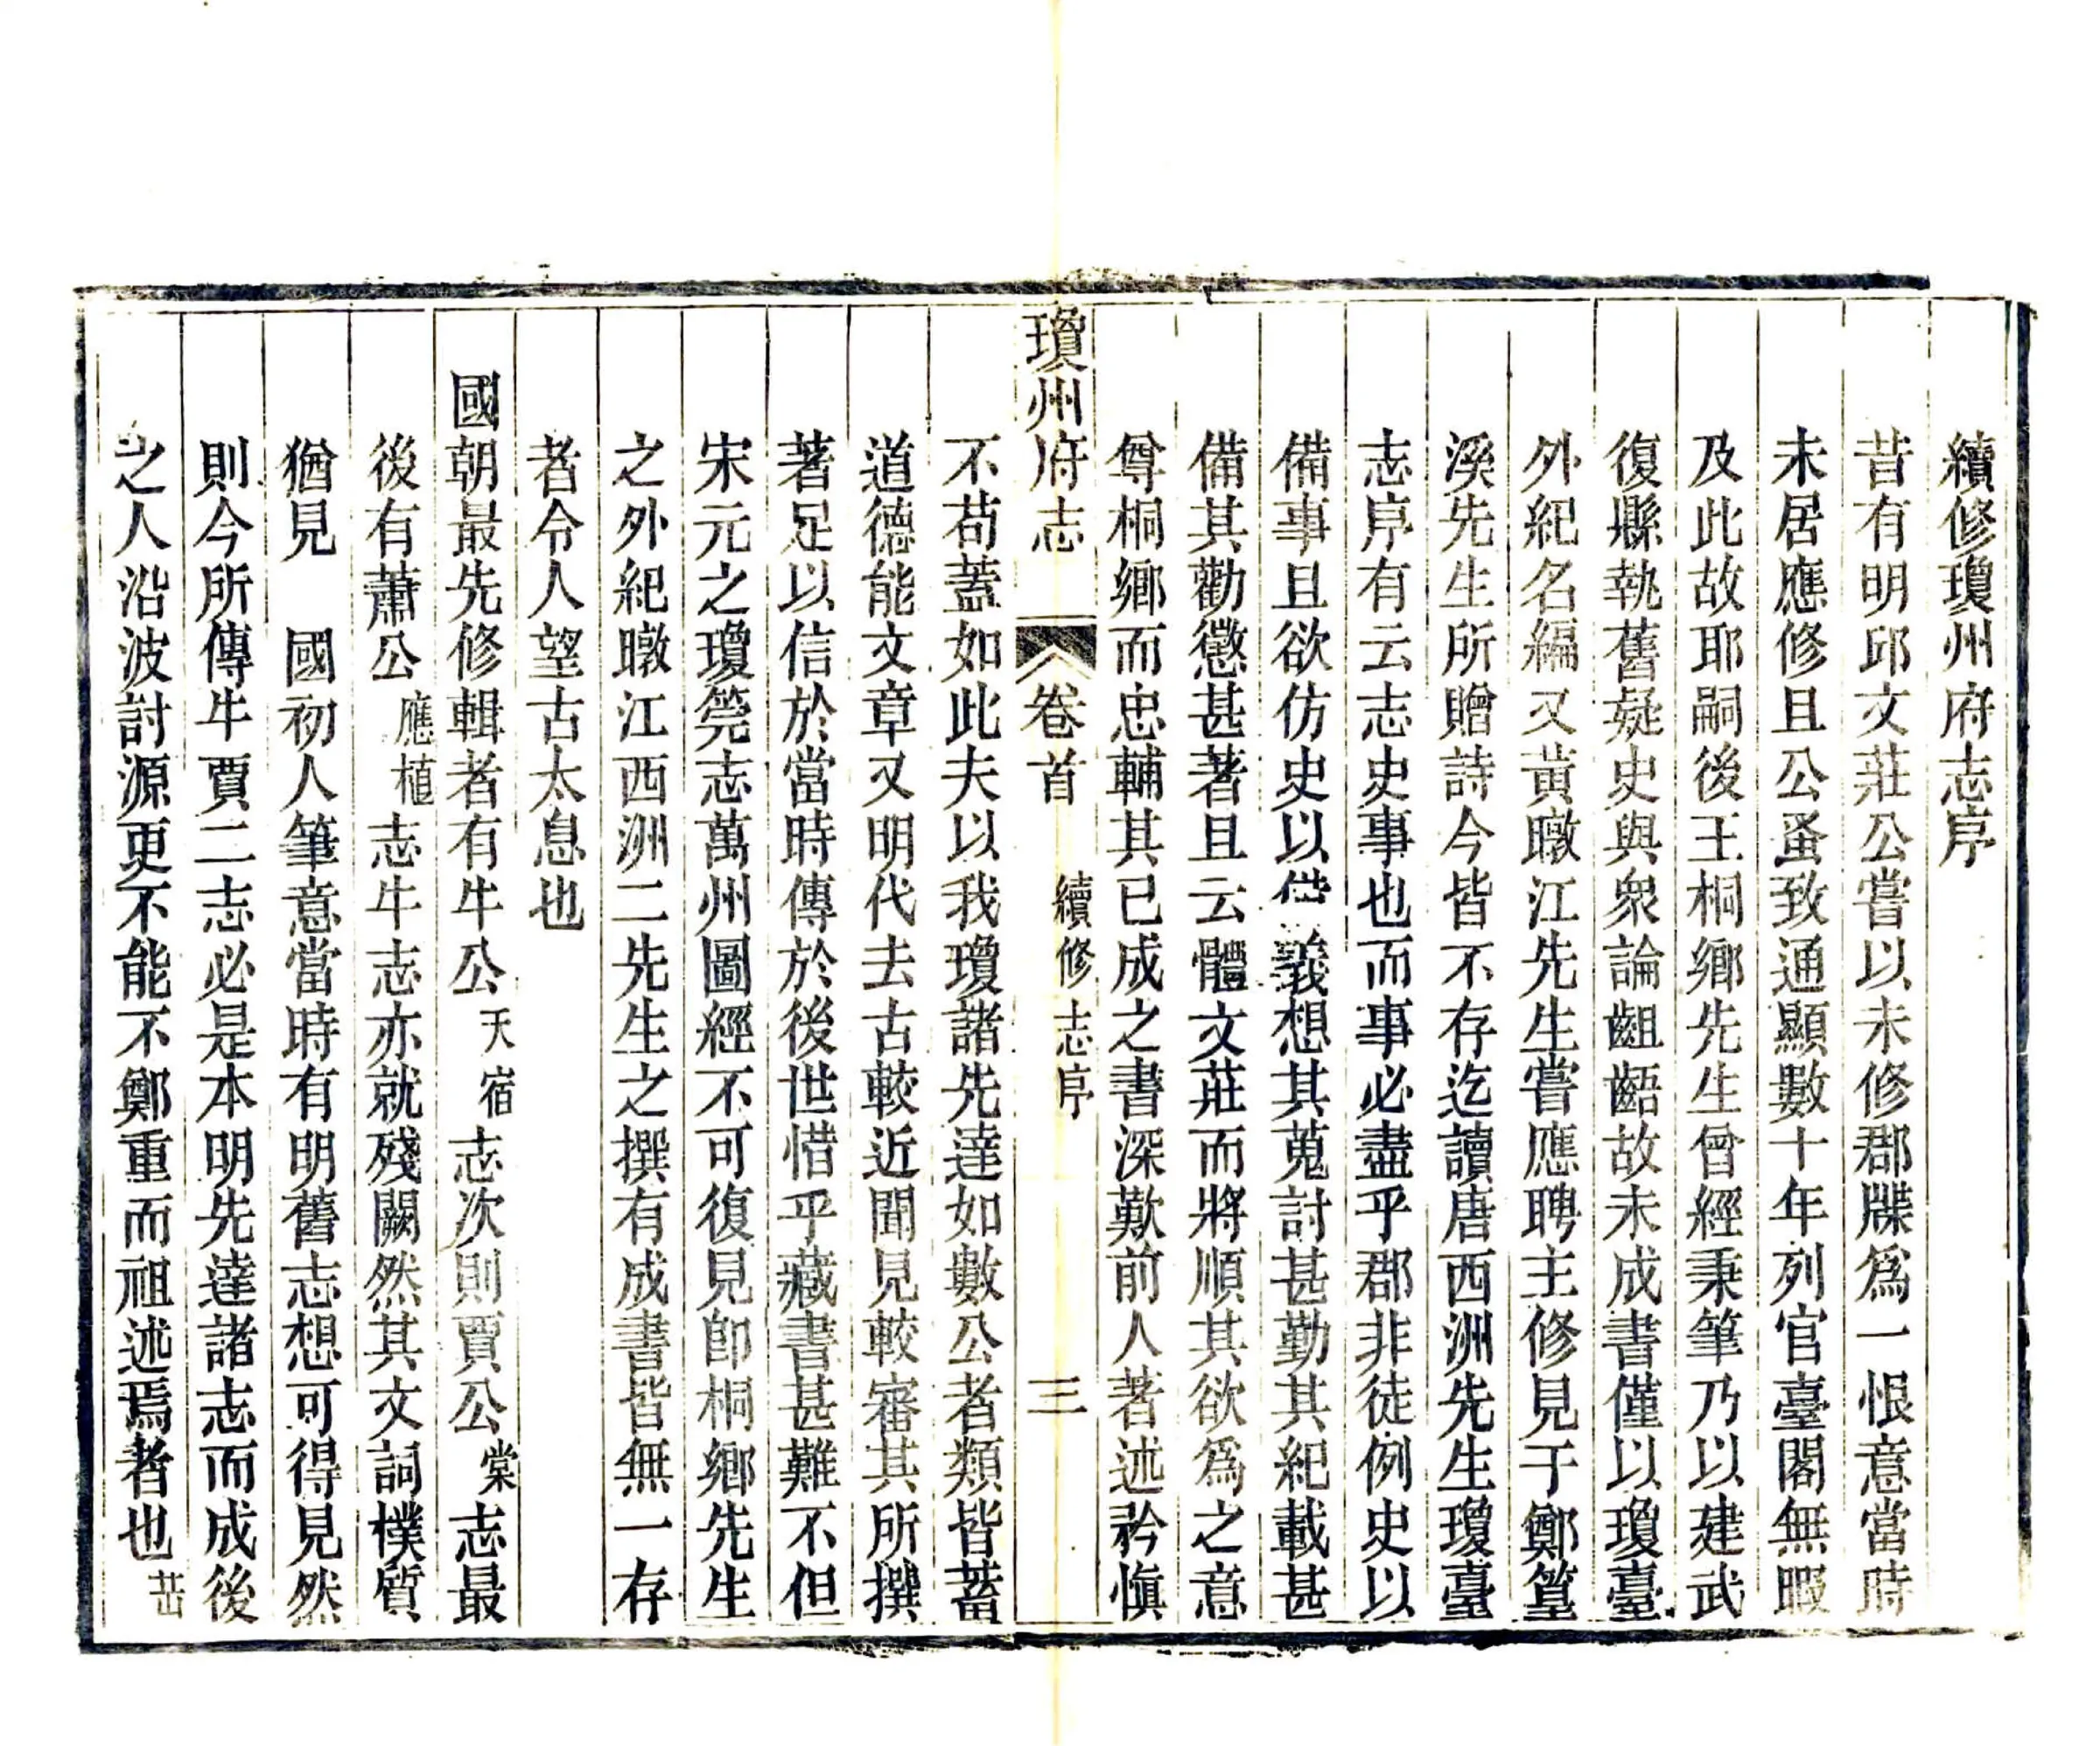 續修瓊州府志序
昔有明邱文莊公嘗以未修郡牒爲一恨意當時
未居應修且公蚤致通顯數十年列官臺閣無暇
及此故耶嗣後王桐鄉先生曾經秉筆乃以建武
復縣執舊疑史與衆論齟齬故未成書僅以瓊臺
外紀名編又黃暾江先生嘗應聘主修見于鄭篁
溪先生所贈詩今皆不存迄讀唐西洲先生瓊臺
志序有云志史事也而事必盡乎郡非徒例史以
備事且欲仿史以備義想其蒐討甚勤其紀載甚
備其勸懲甚著且云體文莊而將順其欲爲之意
尊桐鄉而忠輔其已成之書深歎前人著述矜愼
瓊州府志 卷首 續修志序 三
不苟蓋如此夫以我瓊諸先達如數公者類皆蓄
道德能文章又明代去古較近聞見較審其所撰
著足以信於當時傳於後世惜乎藏書甚難不但
宋元之瓊筦志萬州圖經不可復見卽桐鄉先生
之外紀暾江西洲二先生之撰有成書皆無一存
者令人望古太息也
國朝最先修輯者有牛公天宿志次則賈公棠志最
後有蕭公應植志牛志亦就殘闕然其文詞樸質
猶見 國初人筆意當時有明舊志想可得見然
則今所傳牛賈二志必是本明先達諸志而成後
之人沿波討源更不能不鄭重而祖述焉者也